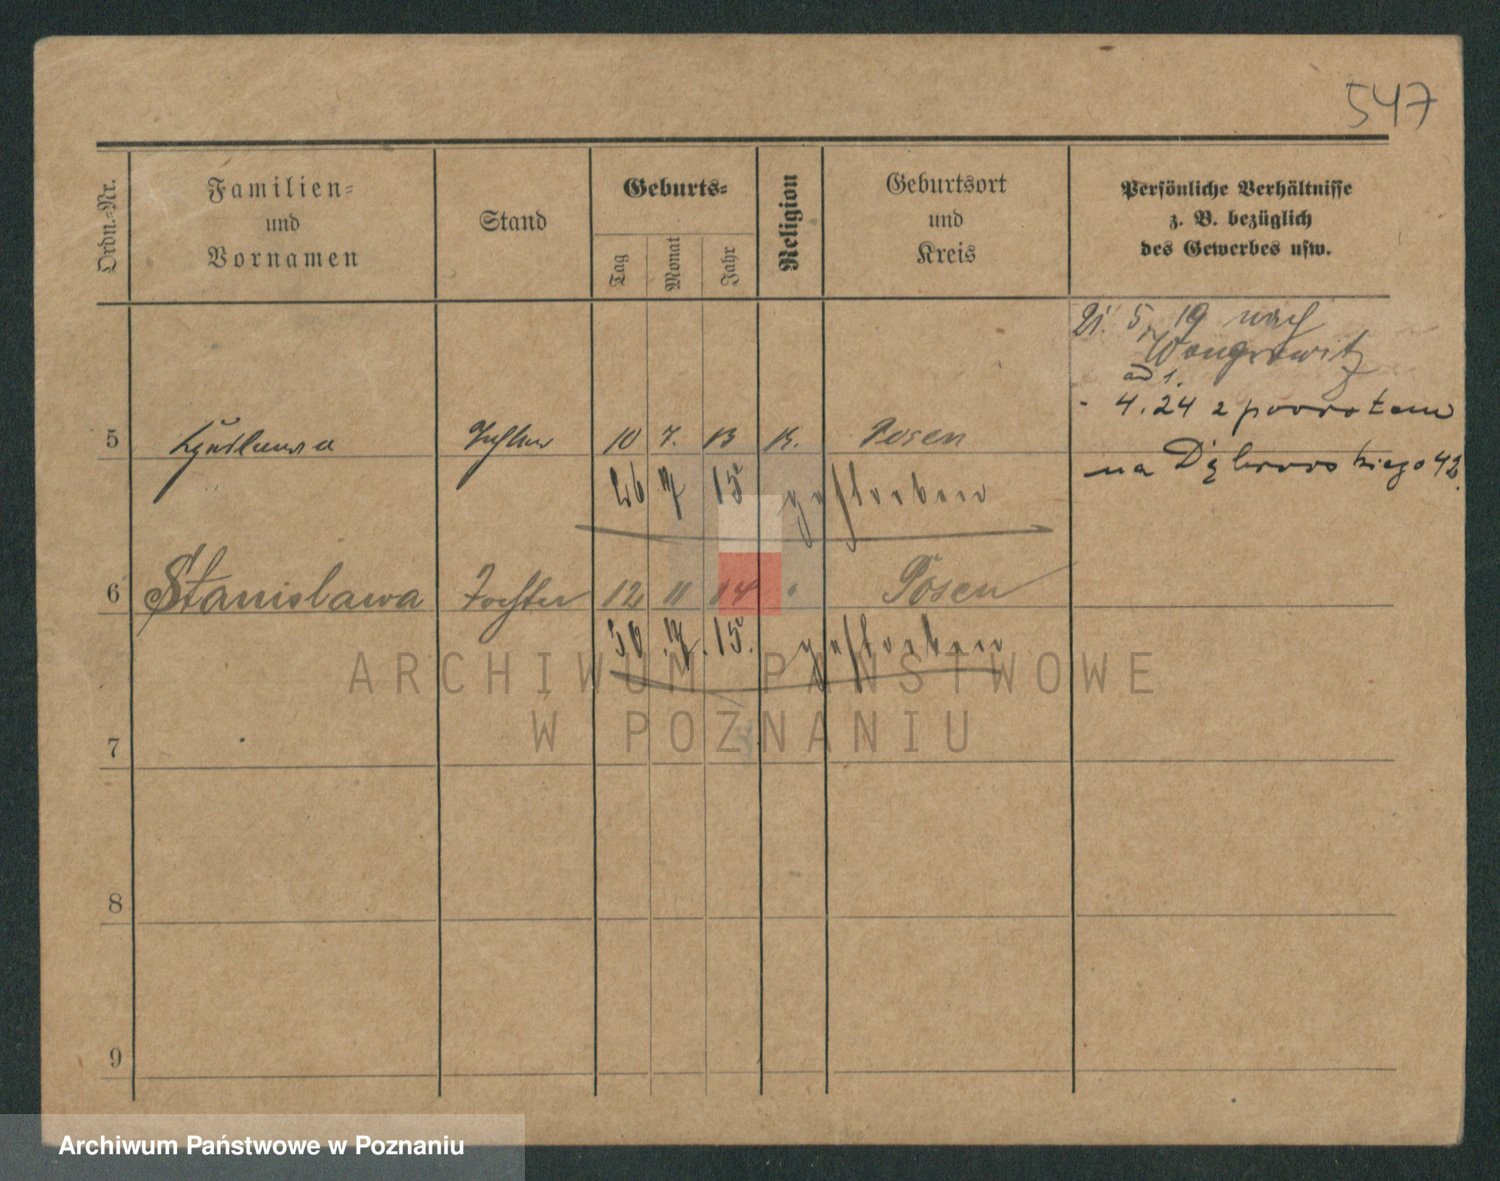 547
Ordn.-Nr.
Familien-
und
Vornamen
Stand
Geburts-
Tag
Monat
Jahr
Religion
Geburtsort
und
Kreis
Persönliche Verhältnisse
z. B. bezüglich
des Gewerbes usw.
5. 19 nach
Wongrowitz
ad 1.
4.24 z powrotem
na Dąbrowskiego 42.
5 Tochter 10 7. 13 K. Posen
26 7 15 gestorben
6 Stanisława Tochter 12 11 14 " Posen
30. 7. 15. gestorben
7
8
9
ARCHIWUM PAŃSTWOWE
W POZNANIU
Archiwum Państwowe w Poznaniu